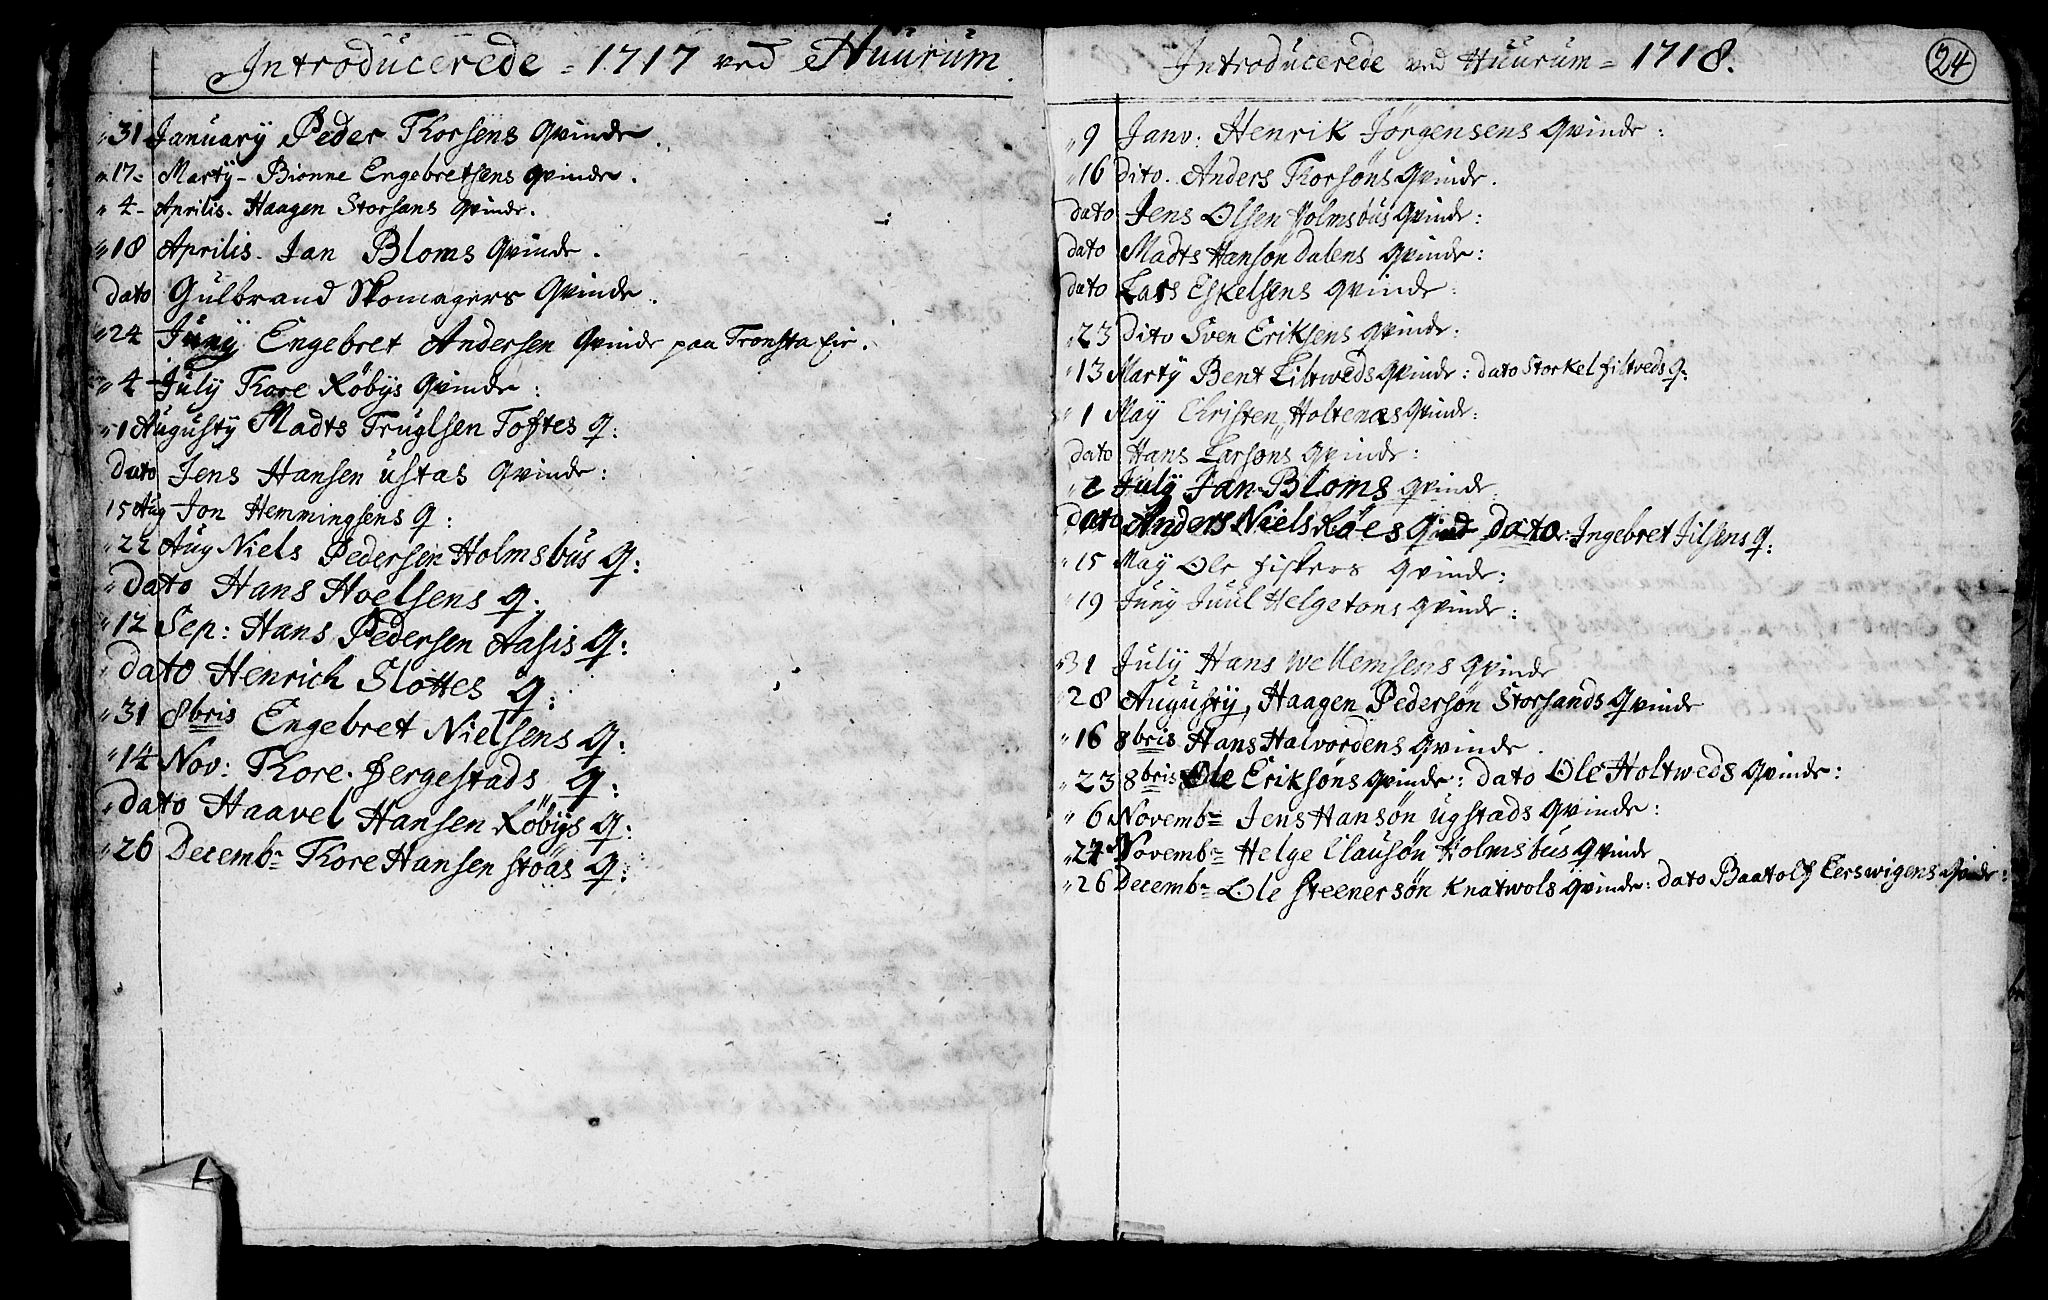 Introducerede = 1717 ved Huurum.
31 January Peder Thorsens Qvinde.
17 = Marty - Bionne Engebretsens qvinde.
4 - Aprilis. Haagen Storsans qvinde.
18 Aprilis. Jan Bloms Qvinde.
dato Gulbrand Skomagers Qvinde.
24 Juny Engebret Andersen Qvinde paa Tronsta eie.
4 July Thore Röbys Qvinde:
1 Augusty Madts Truglsen Toftes Q:
Dato Jens Hansen ustas Qvinde:
15 Aug Jon Hemmingsens Q:
22 Aug Niels Pedersen Holmsbüs Q:
dato Hans Hoelsens Q.
12 Sep: Hans Pedersen Aasis Q:
dato Henrich Slottes Q:
31 8bris Engebret Nielsens Q:
14 Nov: Thore. Fergestads Q:
dato Haavel Hansen Röbÿs Q:
26 Decembr Thore Hansen stöas Q:
Introducerede ved Huurum = 1718.
24
9 Janv: Henrik Jörgensens Qvinde:
16 Dito. Anders Thorsöns Qvinde.
dato Jens Olsen Holmsbüs Qvinde:
dato Madts Hansön Dalens Qvinde:
dato Lars Eskelsens Qvinde:
23 Dito Sven Eriksens Qvinde:
13 Marty Bent Filtweds Qvinde: dato Storkel filtveds Q:
1 May Christen Holtenæs Qvinde:
dato Hans Larsöns Qvinde:
2 July Jan Bloms qvinde
Dato Anders Niels Röes Qvind Dato: Ingebret Jilsens Q:
15 May Ole fiskers Qvinde:
19 Juny Juul Helgetons Qvinde:
31 July Hans Wellemsens Qvinde
28 Augusty, Haagen Pedersön Storsands Qvinde
16 8bris Hans Halvordens Qvinde.
23 8bris Ole Eriksöns Qvinde: dato Ole Holtweds Qvinde:
6 Novembr Jens Hansön ugstads Qvinde:
24 Novembr Helge Clausön Holmsbus Qvinde
26 Decembr Ole Steenersön Knatwols Qvinde: dato Baatolf Eerswigens Qvinde: